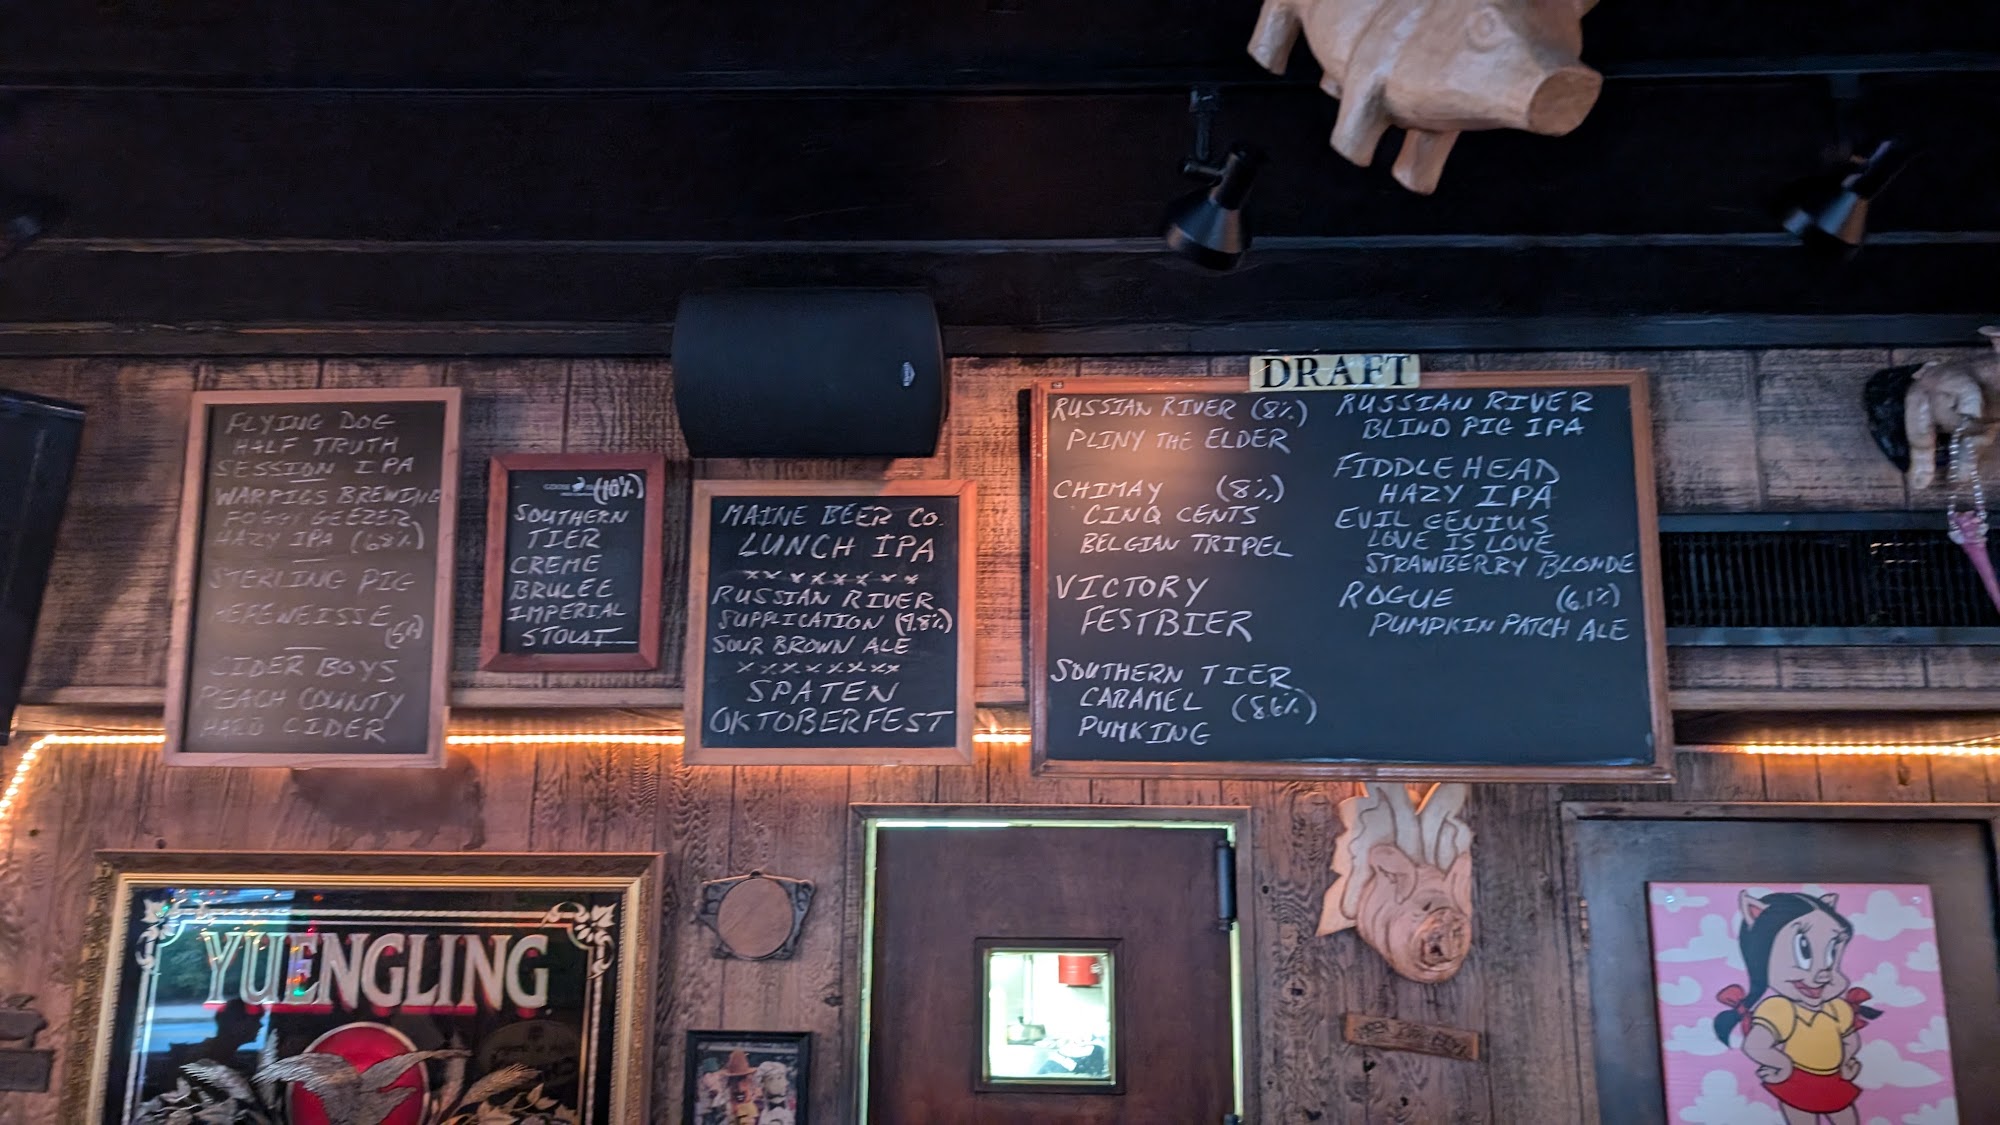 FLYING DOG
HALF TRUTH
SESSION IPA
WARPIGS BREWING
FOGGY GEEZER
HAZY IPA (6.8%)
STERLING PIG
HEFEWEISSE
CIDER BOYS
PEACH COUNTY
HARD CIDER
GOOSE
(10%)
SOUTHERN
TIER
CREME
BRULEE
IMPERIAL
STOUT
MAINE BEER CO.
LUNCH IPA
xxxxxxx
RUSSIAN RIVER
SUPPLICATION (9.8%)
SOUR BROWN ALE
xxxxxxxx
SPATEN
OKTOBERFEST
DRAFT
RUSSIAN RIVER (8%)
PLINY THE ELDER
CHIMAY (8%)
CINQ CENTS
BELGIAN TRIPEL
VICTORY
FESTBIER
SOUTHERN TIER
CARAMEL (8.6%)
PUMKING
RUSSIAN RIVER
BLIND PIG IPA
FIDDLE HEAD
HAZY IPA
EVIL GENIUS
LOVE IS LOVE
STRAWBERRY BLONDE
ROGUE (6.1%)
PUMPKIN PATCH ALE
YUENGLING